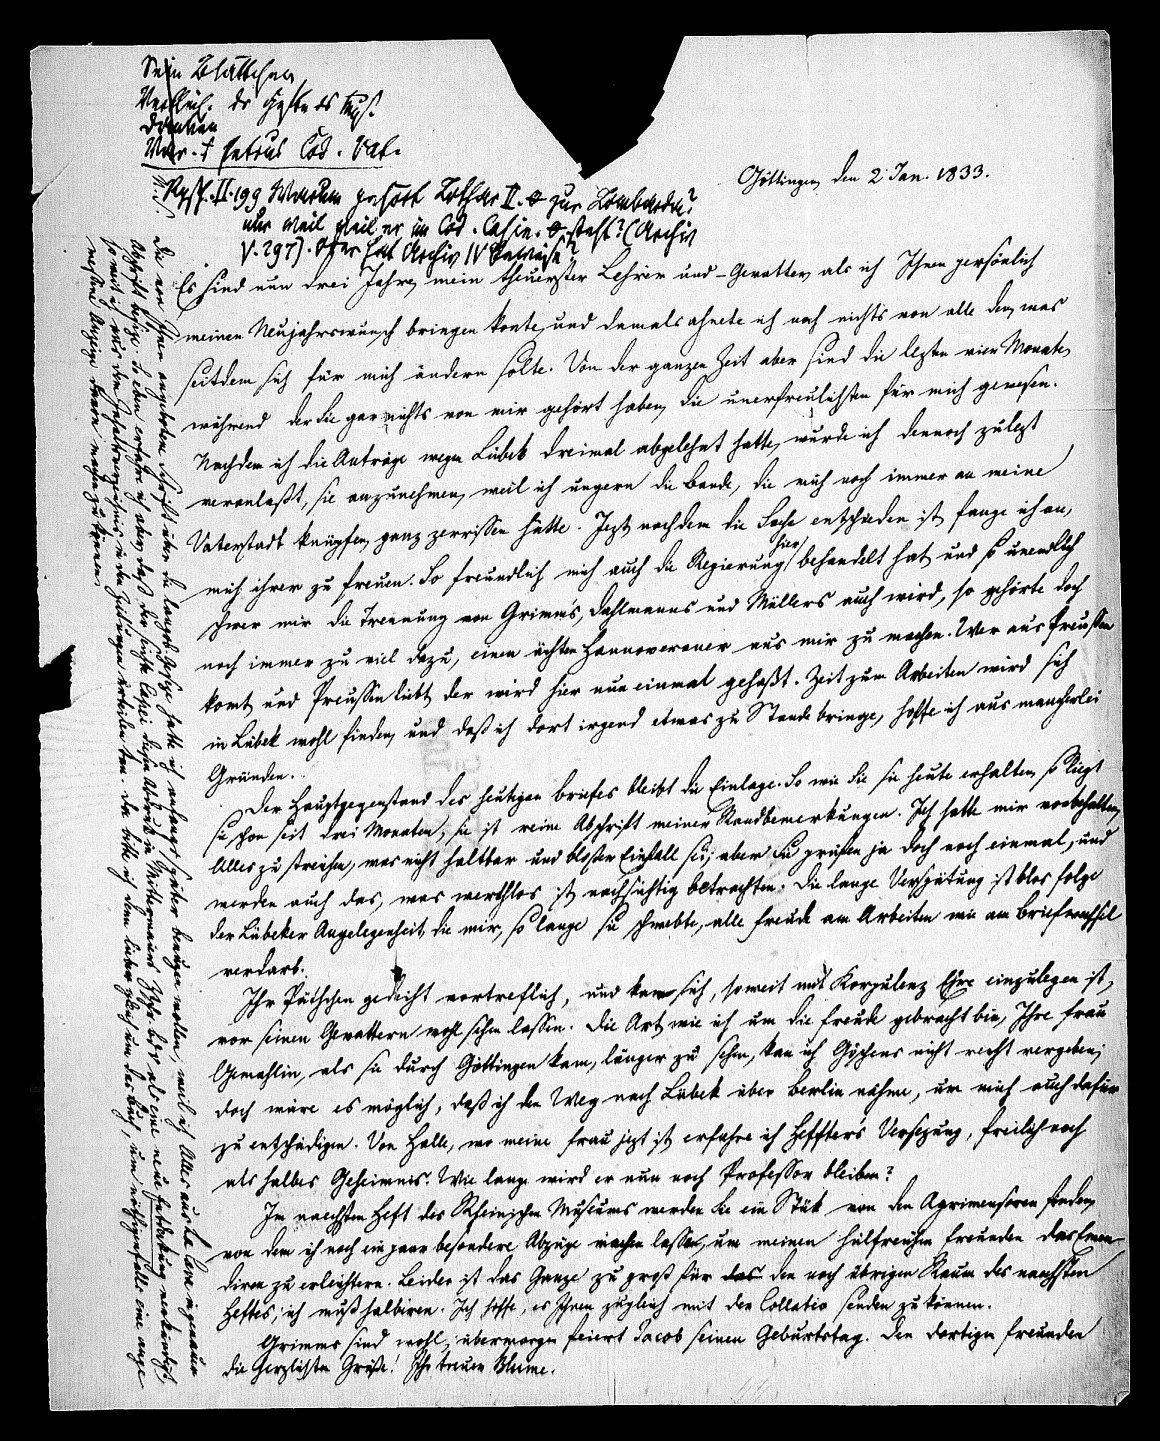 Sein Blättchen
Vergleich. der
Petrus Cod. Vat.
Rgsch. II. 199 Warum gehört Lothar II. zur Lombarda?
nur weil er im Cod. Casin. steht? (Archiv
V. 297). Oder hat Archiv IV Beweise?
Göttingen, den 2 Jan. 1833.
Es sind nun drei Jahre, mein theuerster Lehrer und Gevatter, als ich Ihnen persönlich
meinen Neujahrswunsch bringen konte, und damals ahnete ich noch nichts von alle dem, was
seitdem sich für mich ändern solte. Von der ganzen Zeit aber sind die lezten vier Monate,
während der Sie gar nichts von mir gehört haben, die unerfreulichsten für mich gewesen.
Nachdem ich die Anträge wegen Lübek dreimal abgelehnt hatte, wurde ich dennoch zulezt
veranlaßt, sie anzunehmen, weil ich ungern die Bande, die mich noch immer an meine
Vaterstadt knüpfen, ganz zerrissen hätte. Jezt nachdem die Sache entschieden ist, fange ich an,
mich ihrer zu freuen. So freundlich mich auch die Regierung hier behandelt hat und so unendlich
schwer mir die Trennung von Grimms, Dahlmanns und Müllers auch wird, so gehörte doch
noch immer zu viel dazu, einen ächten Hannoveraner aus mir zu machen. Wer aus Preußen
komt und Preussen liebt, der wird hier nun einmal gehaßt. Zeit zum Arbeiten wird sich
in Lübek wohl finden, und daß ich dort irgend etwas zu Stande bringe, hoffe ich aus mancherlei
Gründen.
Der Hauptgegenstand des heutigen Briefes bleibt die Einlage. So wie Sie sie heute erhalten, so liegt
sie schon seit drei Monaten; sie ist reine Abschrift meiner Randbemerkungen. Ich hatte mir vorbehalten,
Alles zu streichen, was nicht haltbar und bloßer Einfall sei; aber Sie prüfen ja doch noch einmal, und
werden auch das, was werthlos ist, nachsichtig betrachten. Die lange Verspätung ist blos Folge
der Lübeker Angelegenheit, die mir, so lange sie schwebte, alle Freude am Arbeiten wie am Briefwechsel
verdarb.
Ihr Päthchen gedeiht vortreflich, und kann sich, soweit mit Korpulenz Ehre einzulegen ist,
vor seinen Gevattern wohl sehen lassen. Die Art, wie ich um die Freude gebracht bin, Ihre Frau
Gemahlin, als sie durch Göttingen kam, länger zu sehen, kan ich Göschens nicht recht vergeben;
doch wäre es möglich, daß ich den Weg nach Lübek über Berlin nähme, um mich auch dafür
zu entschädigen. Von Halle, wo meine Frau jezt ist, erfahre ich Heffters Versezung, freilich noch
als halbes Geheimnis. Wie lange wird er nun noch Professor bleiben?
Im naechsten Heft des Rheinischen Museums werden Sie ein Stük von den Agrimensoren finden,
von dem ich noch ein paar besondere Abzüge machen lasse, um meinen hülfreichen Freunden das
diren zu erleichtern. Leider ist das Ganze zu groß für das den noch übrigen Raum des naechsten
Heftes; ich muß halbiren. Ich hoffe, es Ihnen zugleich mit der Collatio senden zu können.
Grimms sind wohl; übermorgen feiert Jacob seinen Geburtstag. Den dortigen Freunden
die herzlichsten Grüße! Ihr treuer Blume.
N.S. Die von Ihnen angebotene Schrift über die langob. Gesetze hatte ich anfangs später benuzen wollen, weil ich Alles aus La Cava in genauer
Abschrift besize. So eben erfahre ich aber, daß der dieses Abdruk in Mittermaiers als eine neue Entdekung verkündigt,
so weit ich aus den in den Zeitungen urtheilen kan. Da bitte ich denn lieber gleich um das Buch, um nöthigenfalls eine ange
messene Anzeige davon machen zu können.